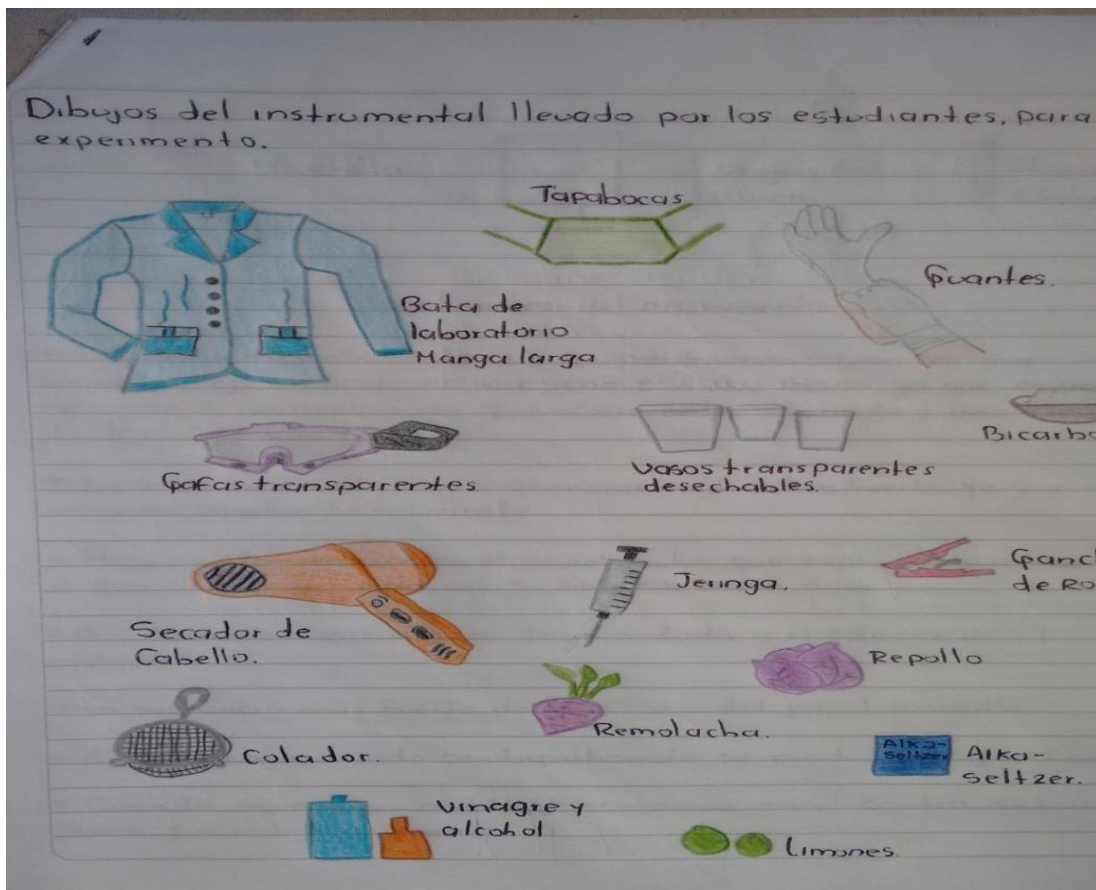 1
Dibujos del instrumental llevado por los estudiantes, para
experimento.
Tapabocas
Guantes.
Bata de
laboratorio
Manga larga
Gafas transparentes
Vasos transparentes
desechables.
Bicarbo
Secador de
Cabello.
Jeringa.
Ganc
de Ro
Repollo
Remolacha.
Colador.
Alka-
Seltzer
Alka-
seltzer.
Vinagre y
alcohol
Limones